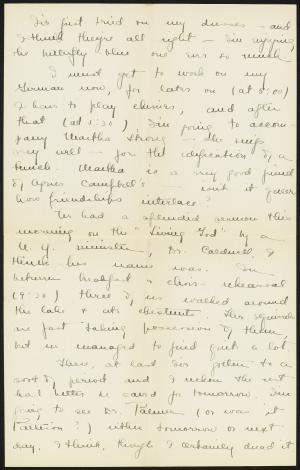 I've just tried on my dresses - and
I think they're all right - I'm enjoying
the butterfly blue one ever so much
I must get to work on my
German now, for later on (at 5:00)
I have to play chimes, and after
that (at 5:30) I'm going to accom-
pany Martha Strong - she sings
very well - for the edification of a
bunch. Martha is a very good friend
of Agnes Campbell's - isn't it queer
how friendships interlace?
We had a splendid sermon this
morning on the "Living God" by a
N.Y. minister, Dr. Caldwell I
think his name was. In
between breakfast & choir rehearsal
(9:30) three of us walked around
the lake & ate chestnuts. The squirrels
are fast taking possession of them,
but we managed to find quite a lot.
There, at last I've gotten to a
sort of period and I reckon the rest
had better be saved for tomorrow. I'm
going to see Dr. Palmer (or was it
) either tomorrow or next
day, I think, though I certainly dread it